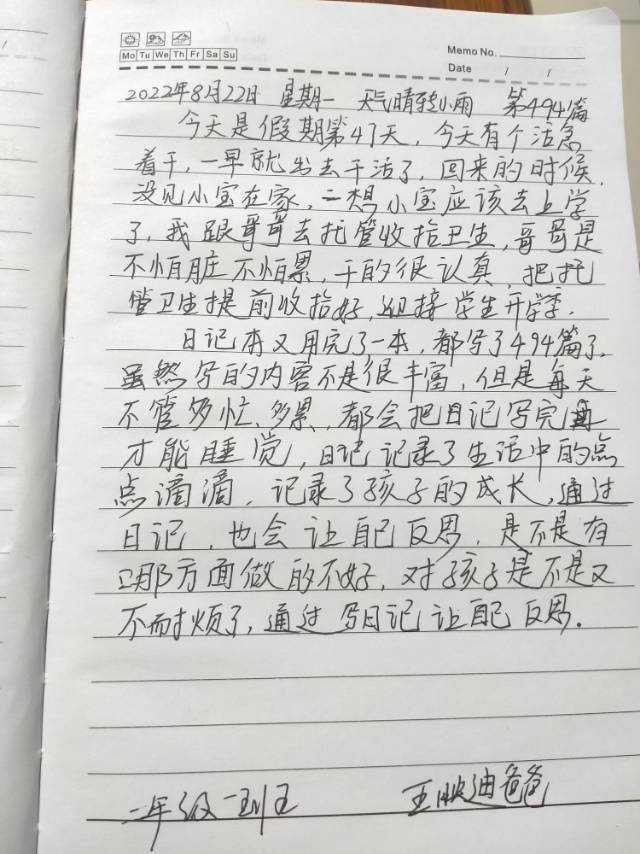 Mo Tu We Th Fr Sa Su
Memo No.
Date / /
2022年8月22日 星期一 天气晴转小雨 第494篇
今天是假期第47天,今天有个活急
着干,一早就出去干活了,回来的时候,
没见小宝在家,一想小宝应该去上学
了,我跟哥哥去托管收拾卫生,哥哥是
不怕脏不怕累,干的很认真,把托
管卫生提前收拾好,迎接学生开学季.
日记本又用完了一本,都写了494篇了,
虽然写的内容不是很丰富,但是每天
不管多忙、多累,都会把日记写完
才能睡觉,日记记录了生活中的点
点滴滴,记录了孩子的成长,通过
日记,也会让自己反思,是不是有
哪方面做的不好,对孩子是不是又
不耐烦了,通过写日记让自己反思.
一年级一班 王 迪爸爸